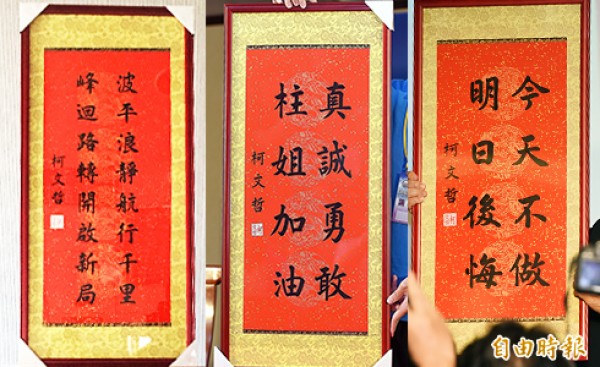 波平浪靜航行千里
峰迴路轉開啟新局
柯文哲
真誠勇敢
柱姐加油
柯文哲
今天不做
明日後悔
柯文哲
自由時報